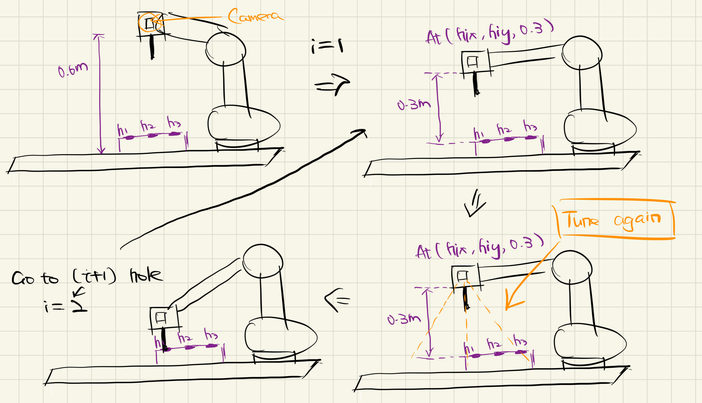 Camera
0.6m
h1 h2 h3
i=1
⇒
At (hix, hiy, 0.3)
0.3m
h1 h2 h3
Tune again
At (hix, hiy, 0.3)
0.3m
h1 h2 h3
Go to (i+1) hole
i=2
h1 h2 h3